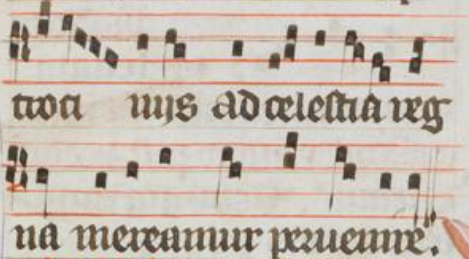 troci nijs ad celestia reg
na mereamur peruenire.